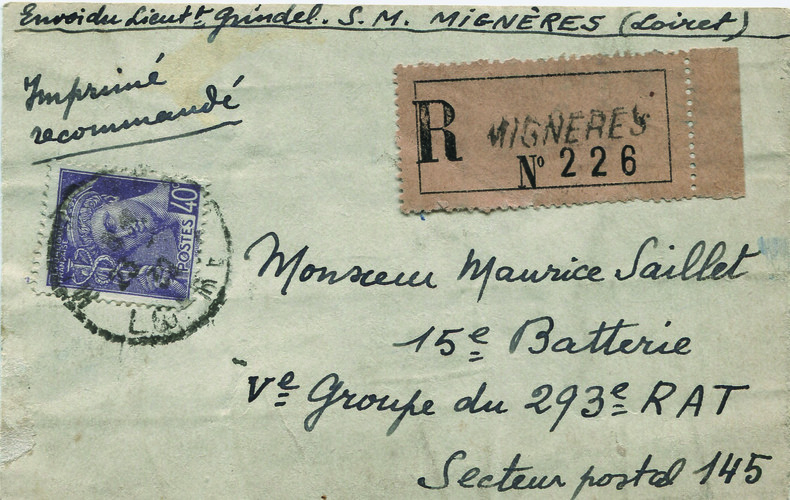 Envoi du Lieutt Grindel. S. M. MIGNÈRES (Loiret)
Imprimé
recommandé
R MIGNERES
No 226
40c
POSTES
FRANÇAISE
Monsieur Maurice Saillet
15e Batterie
Ve Groupe du 293e RAT
Secteur postal 145